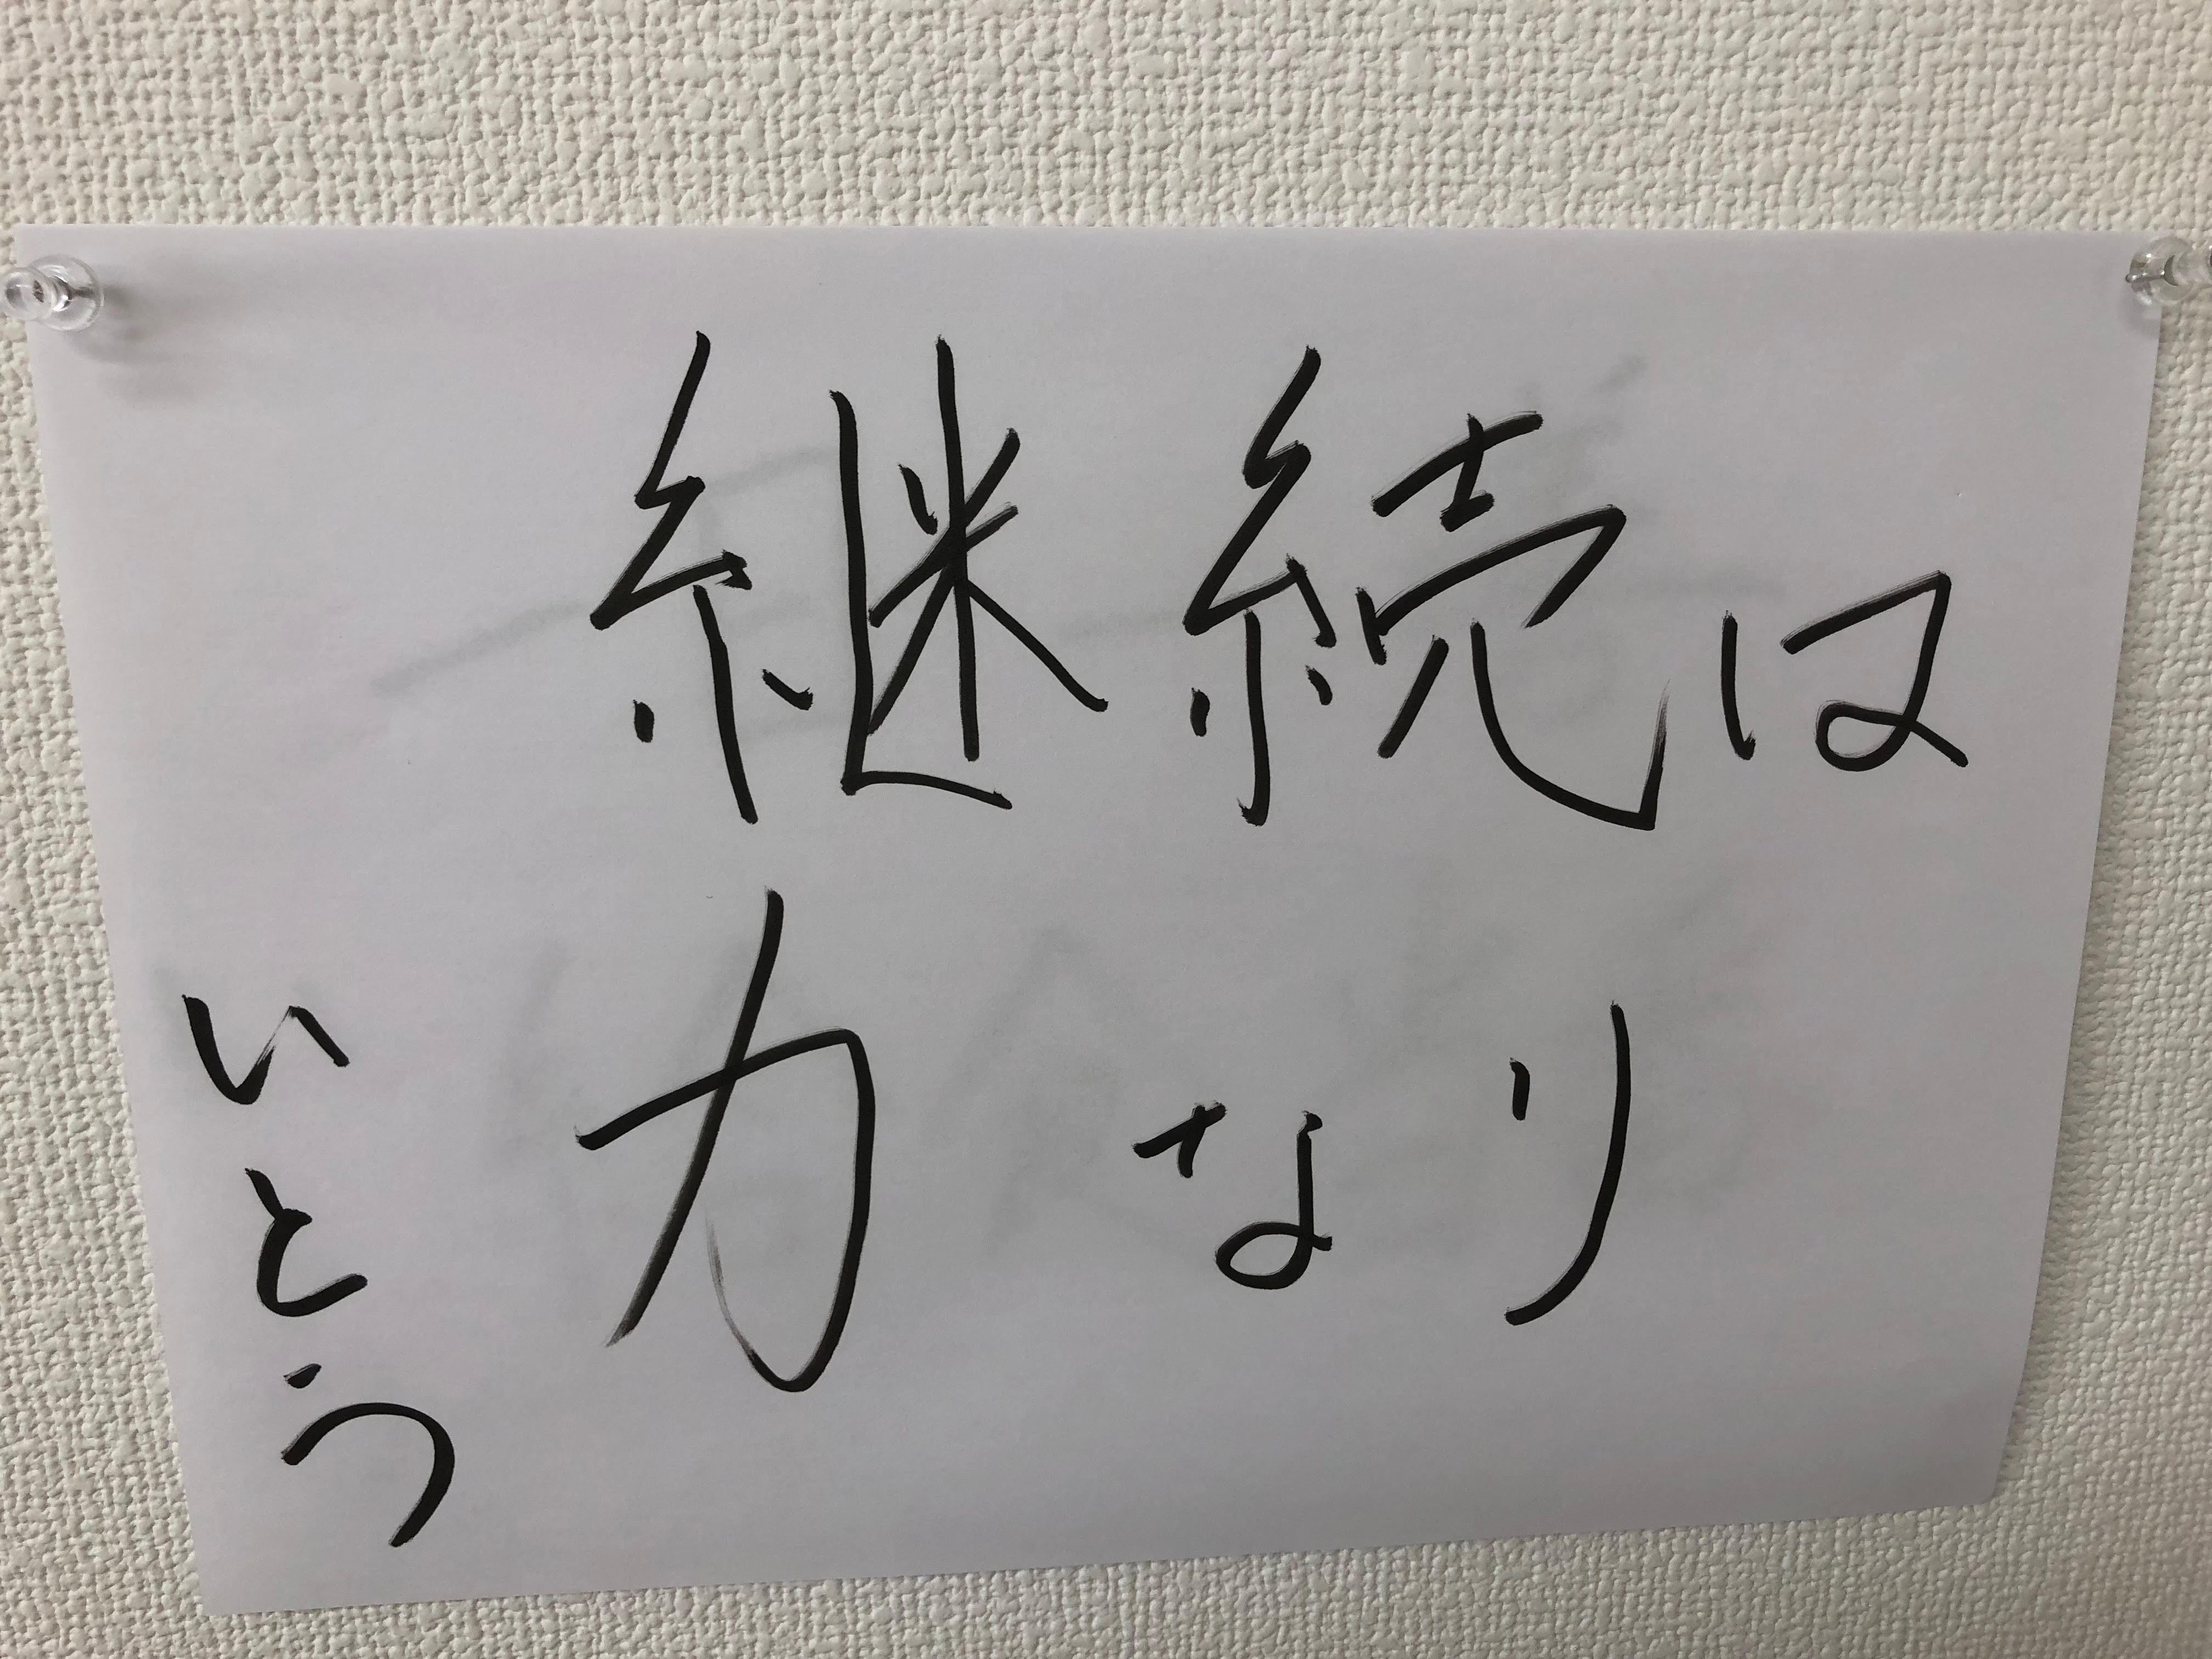 継続は
力なり
いとう